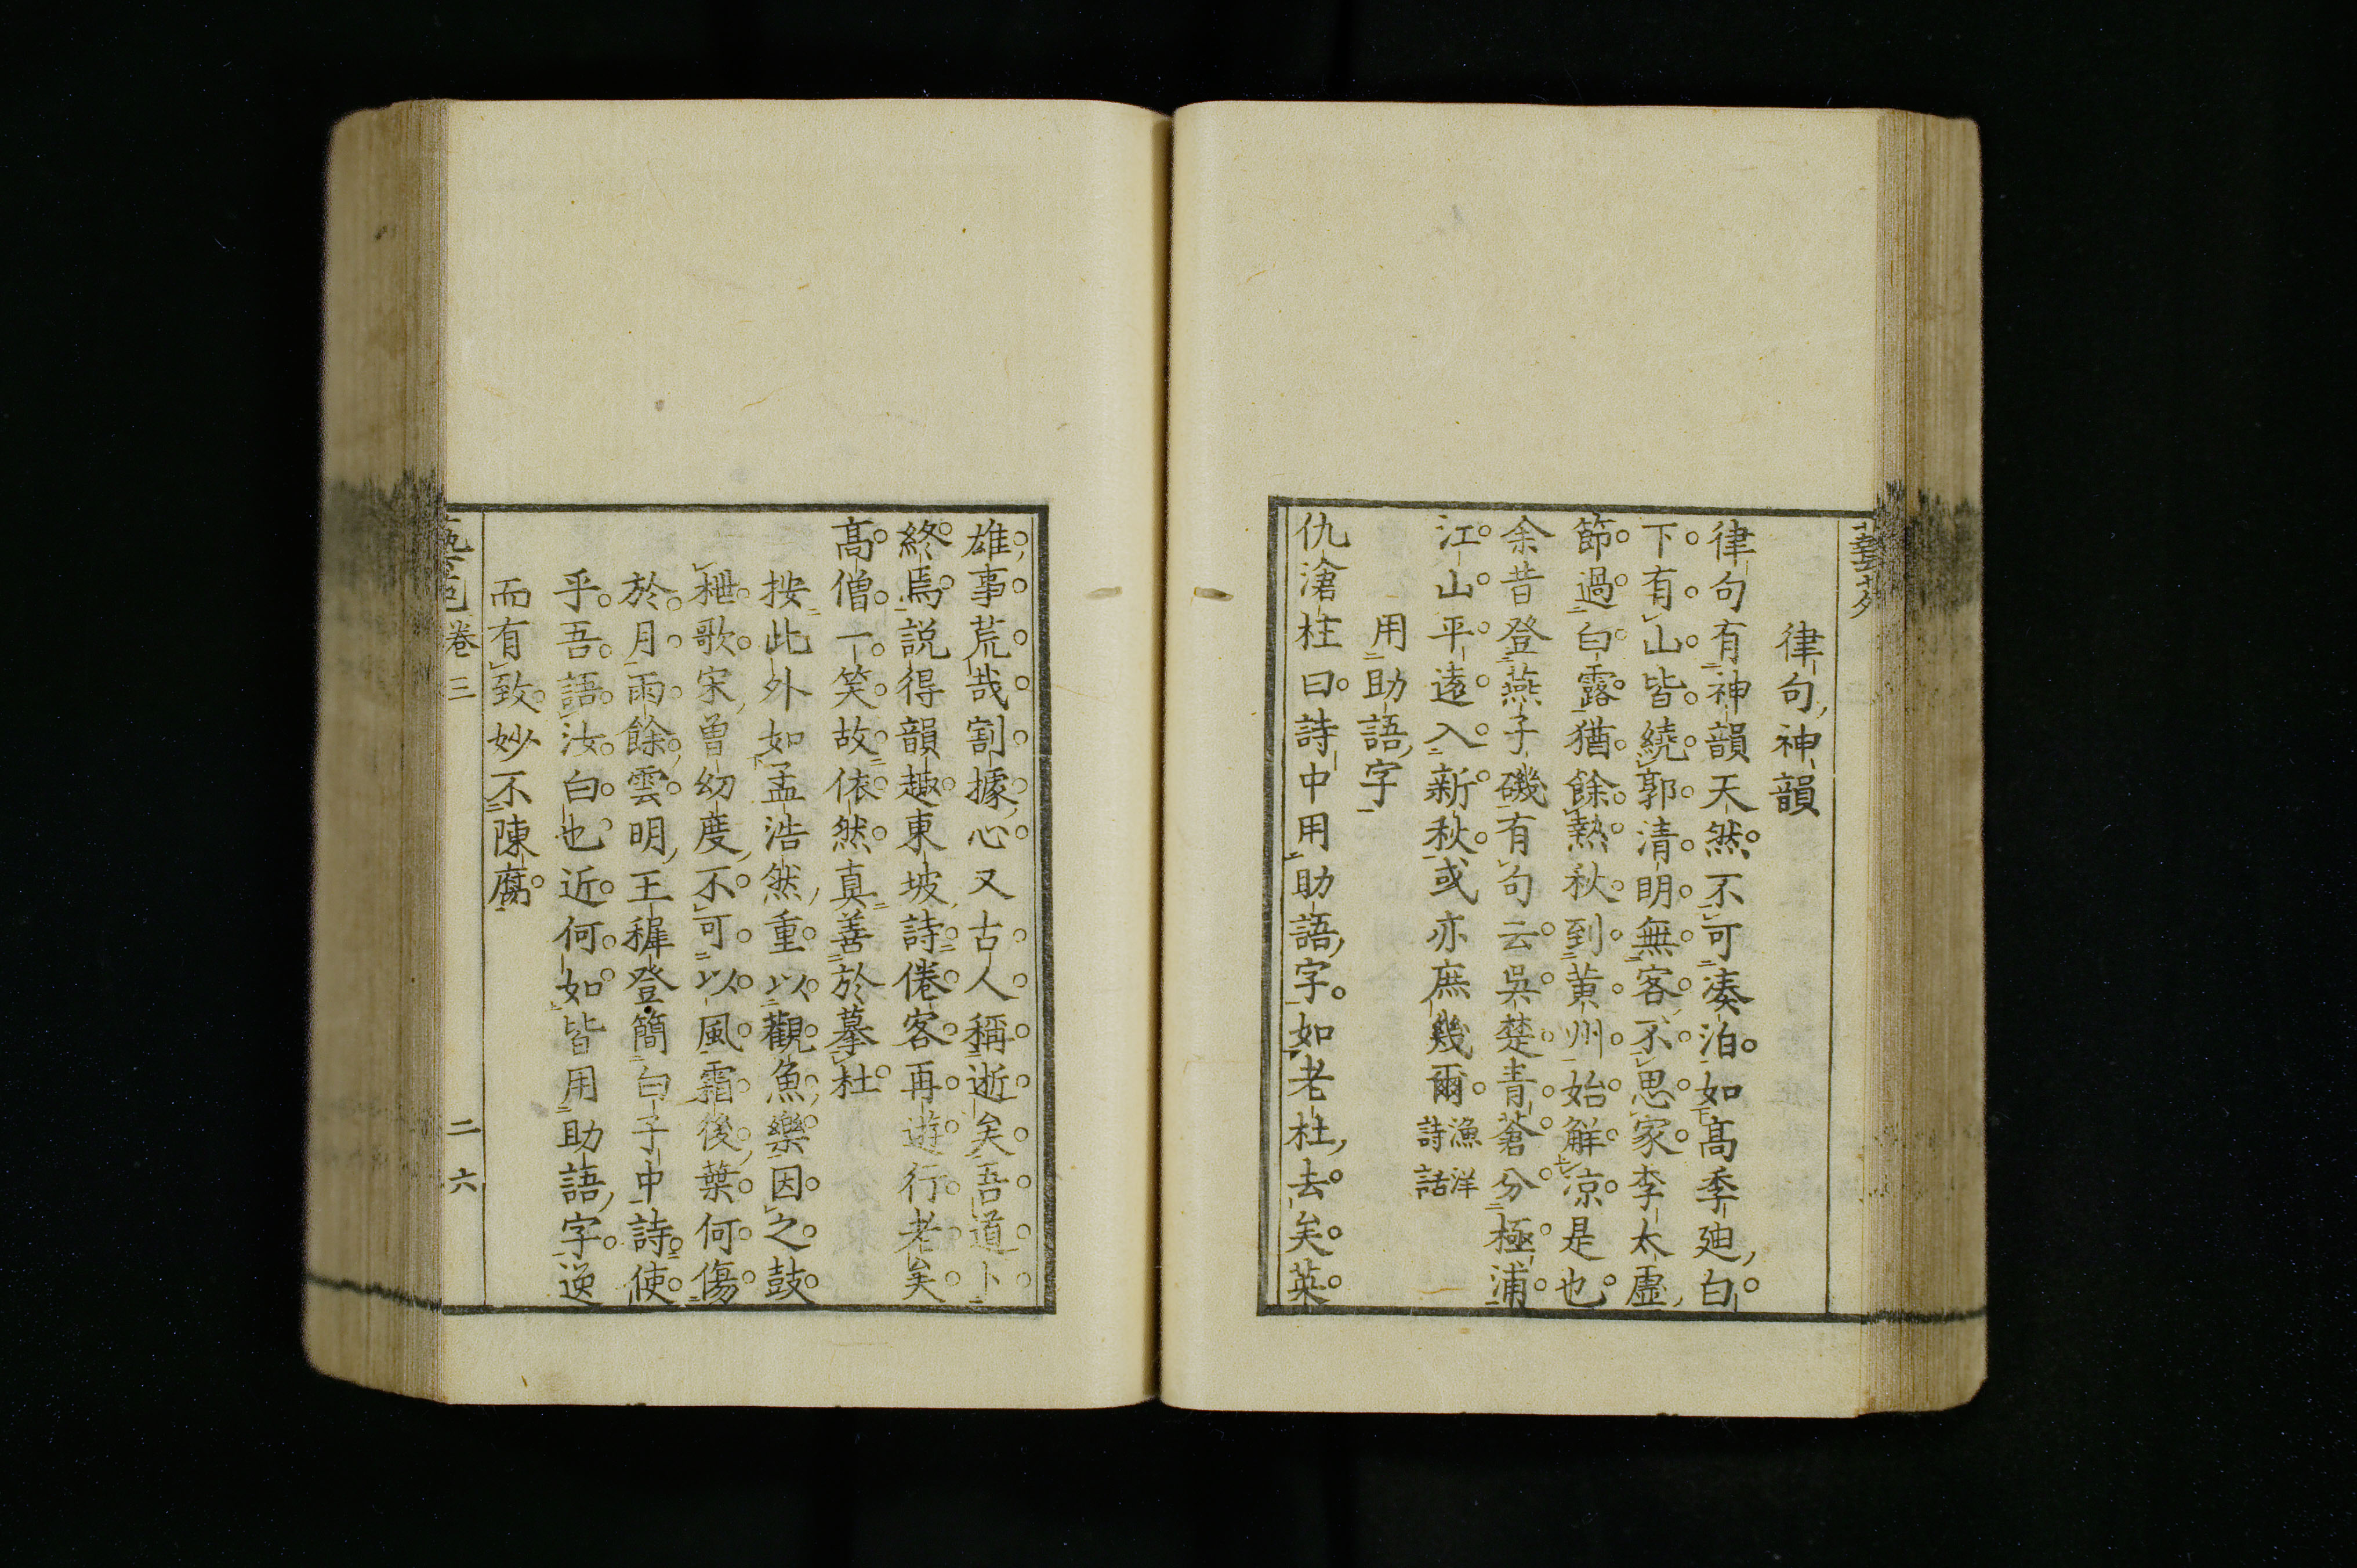 律句神韻
律句有神韻天然不可湊泊如高季廸白
下有山皆繞郭清明無客不思家李太虛
節過白露猶餘熱秋到黄州始解凉是也
余昔登燕子磯有句云吳楚青蒼分極浦
江山平遠入新秋或亦庶幾爾漁洋詩話
用助語字
仇滄柱曰詩中用助語字如老杜去矣英
雄事荒哉割據心又古人稱逝矣吾道卜
終焉說得韻趣東坡詩倦客再遊行老矣
高僧一笑故依然真善於摹杜
按此外如孟浩然重以觀魚樂因之鼓
枻歌宋曾幻度不可以風霜後葉何傷
於月雨餘雲明王穉登簡白子中詩使
乎吾語汝白也近何如皆用助語字逸
而有致妙不陳腐
卷三
二六